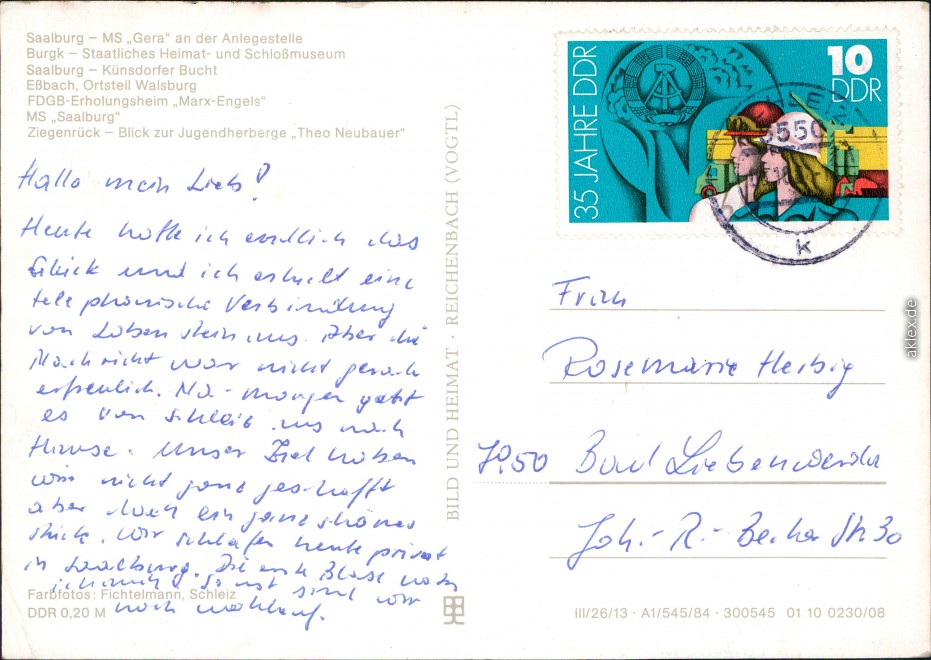 Saalburg – MS „Gera“ an der Anlegestelle
Burgk – Staatliches Heimat- und Schloßmuseum
Saalburg – Künsdorfer Bucht
Eßbach, Ortsteil Walsburg
FDGB-Erholungsheim „Marx-Engels“
MS „Saalburg“
Ziegenrück – Blick zur Jugendherberge „Theo Neubauer“
Hallo mein Lieb!
Heute hatte ich endlich das
Glück und ich erhielt eine
telephonische Verbindung
von Lobenstein aus. Aber die
Nachricht war nicht gerade
erfreulich. Na - morgen geht
es von Schleiz aus nach
Hause. Unser Ziel haben
wir nicht ganz geschafft
aber doch ein ganz schönes
Stück. Wir schlafen heute privat
in Saalburg. Die erste Blase habe
ich auch. So sind wir
noch wohlauf.
Farbfotos: Fichtelmann, Schleiz
DDR 0,20 M
BILD UND HEIMAT · REICHENBACH (VOGTL)
35 JAHRE DDR
10
DDR
6550
k
Frau
Rosemarie Herbig
7950 Bad Liebenwerda
Joh.-R.-Becher Str. 30
III/26/13 · A1/545/84 · 300545 01 10 0230/08
aklex.de